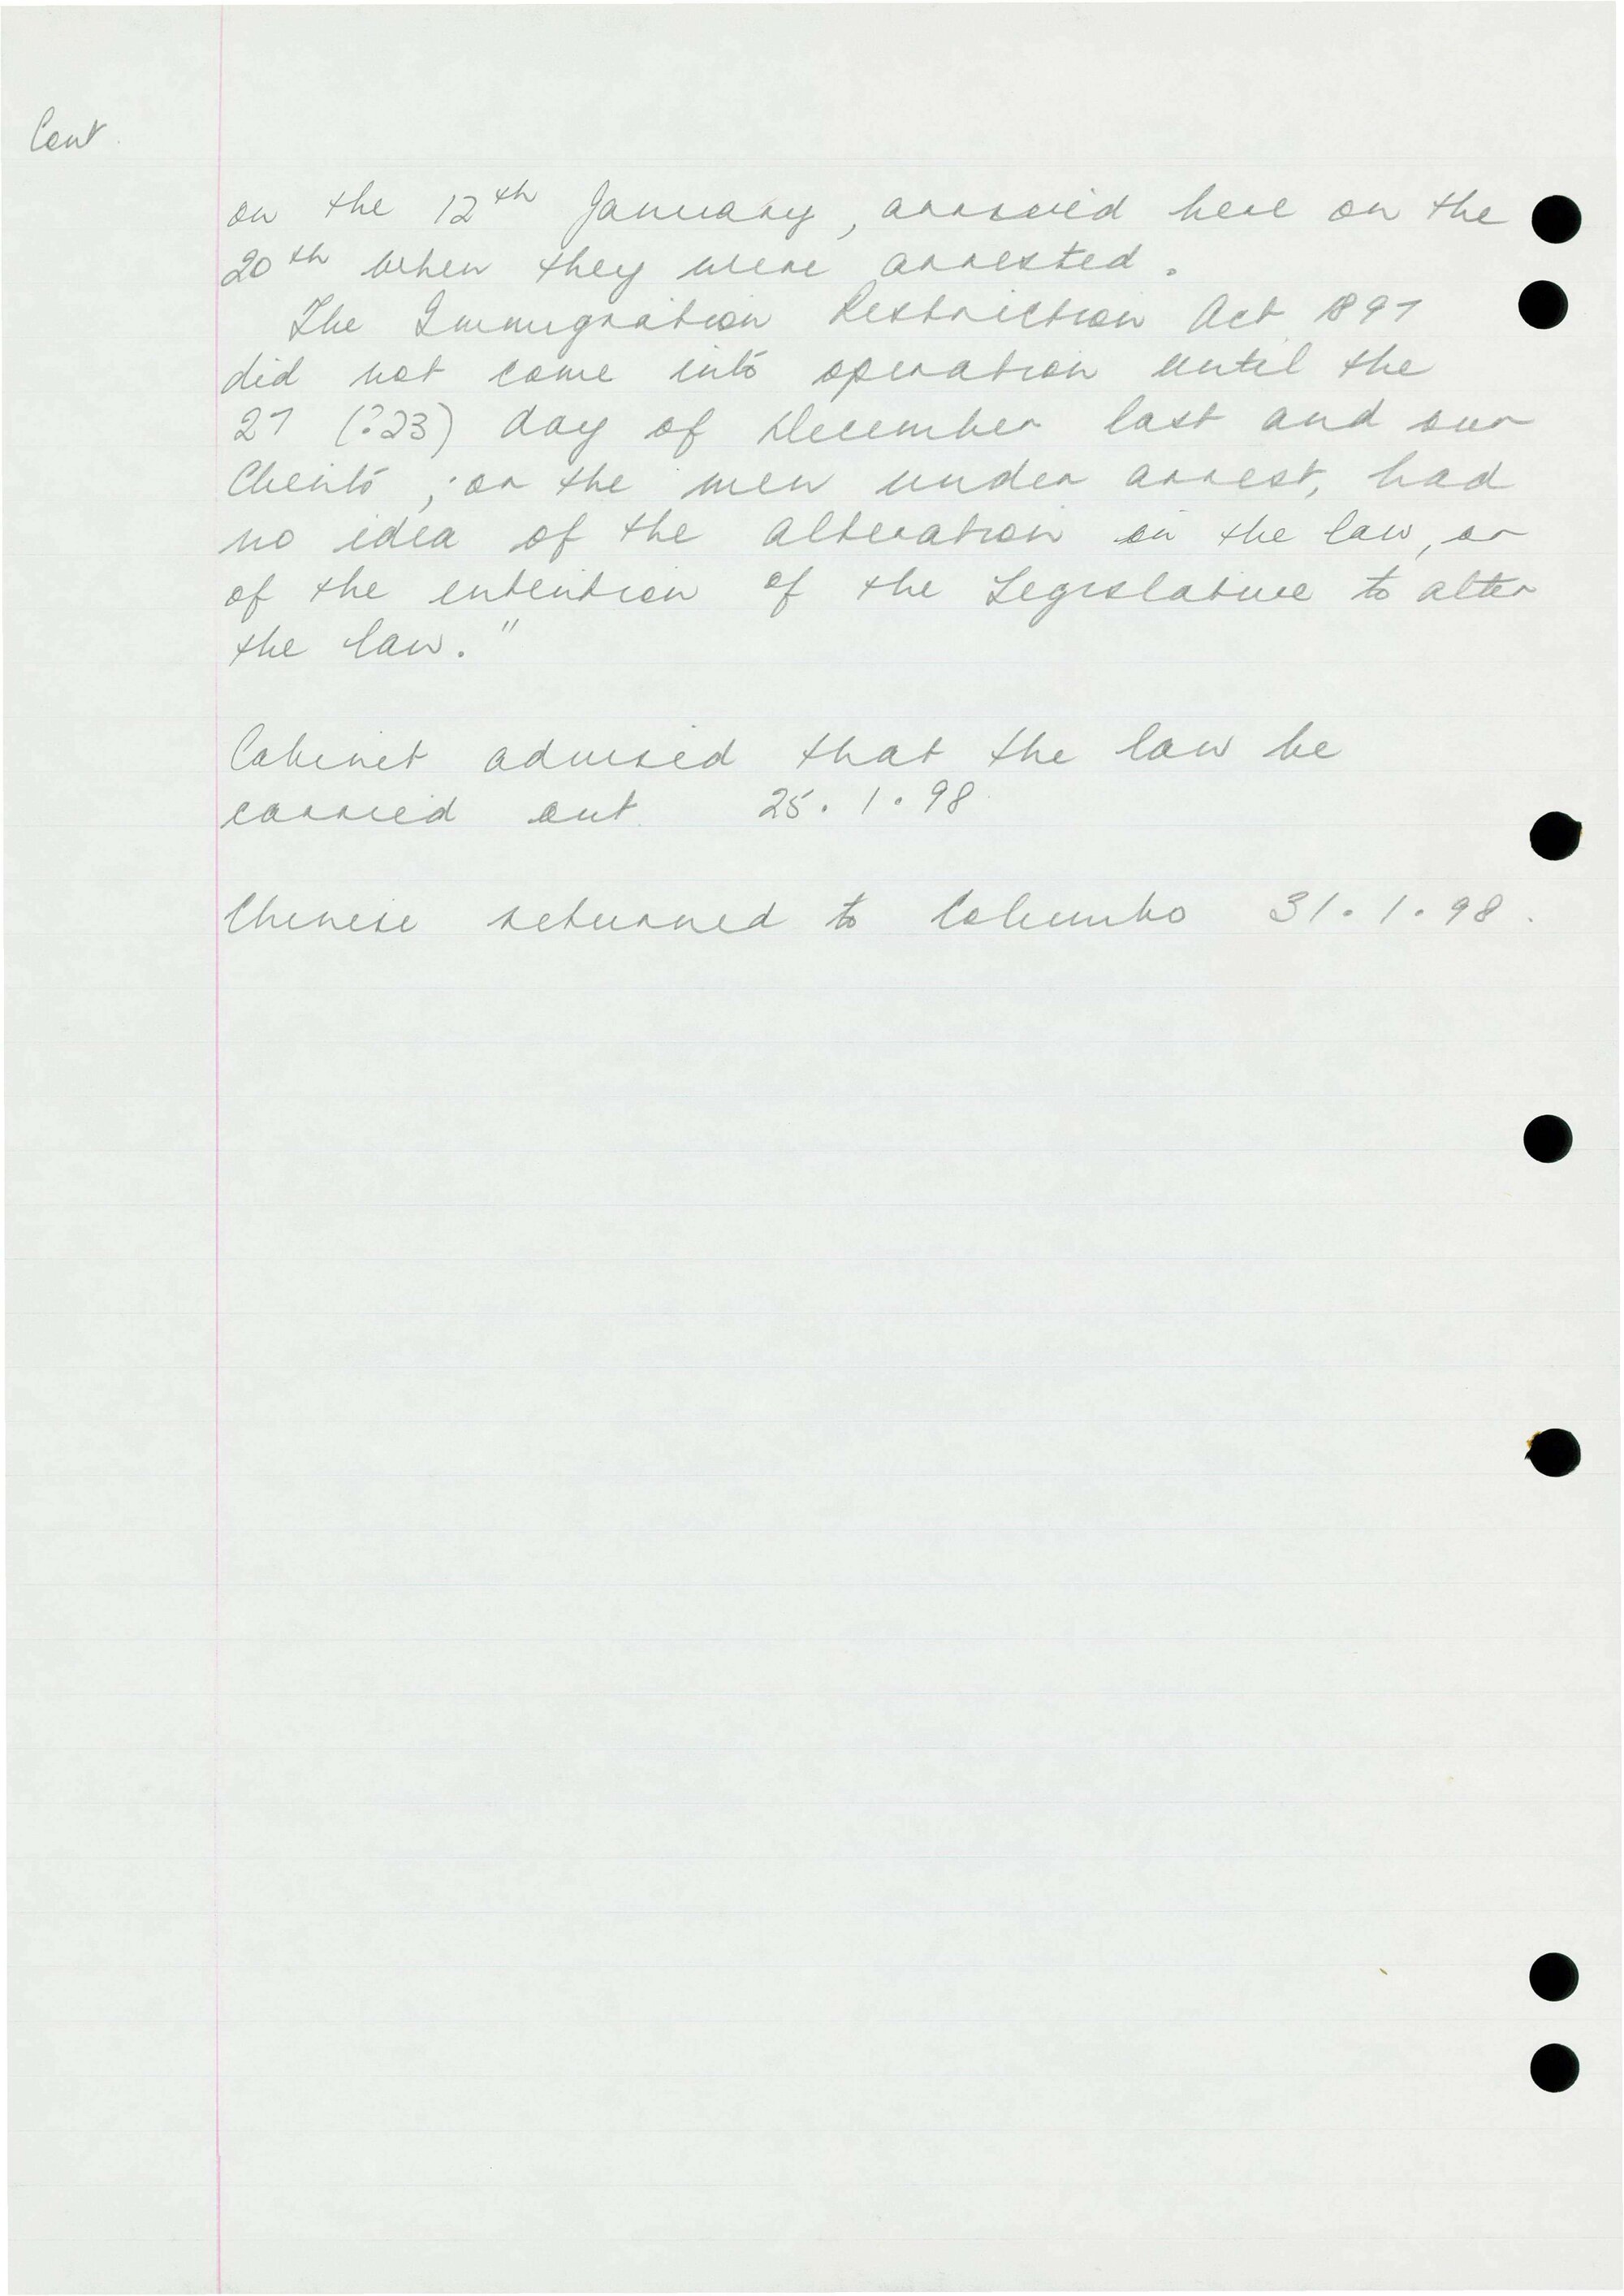 Cont.
on the 12th January, arrived here on the
20th when they were arrested.
The Immigration Restriction Act 1897
did not come into operation until the
27 (?23) day of December last and our
Clients, or the men under arrest, had
no idea of the alteration in the law, or
of the intention of the Legislature to alter
the law."
Cabinet advised that the law be
carried out. 25.1.98
Chinese returned to Columbo 31.1.98.